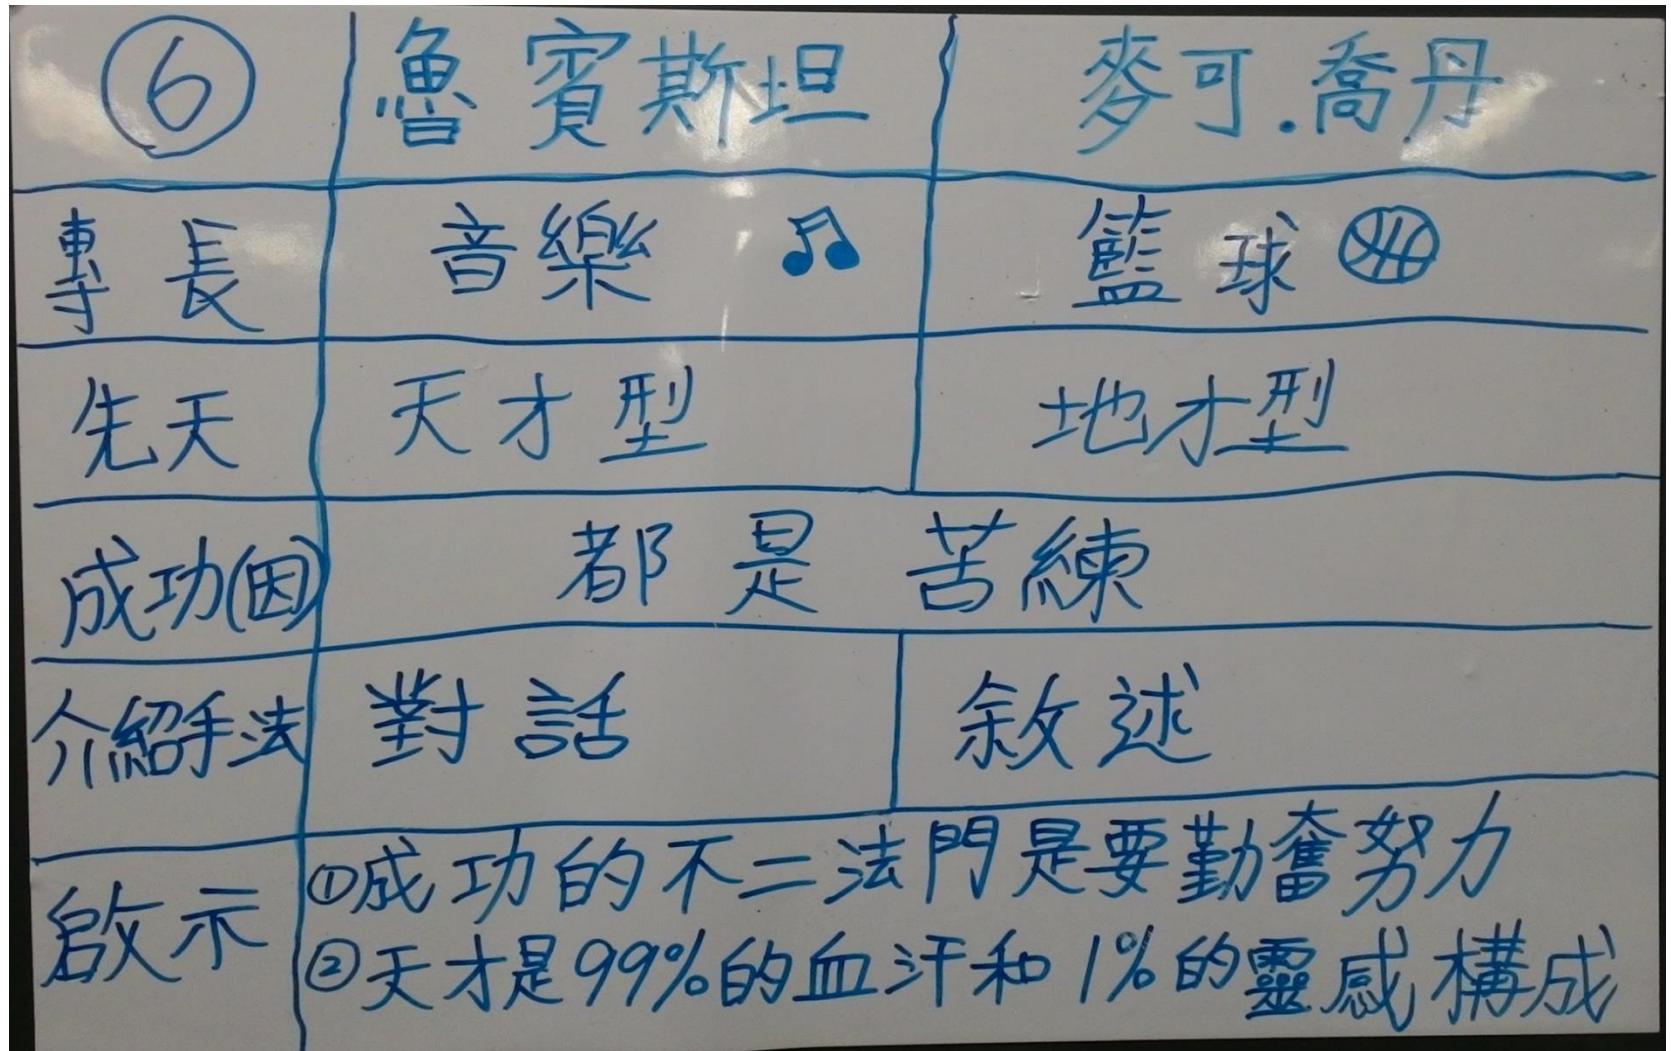 ⑥ 魯賓斯坦 麥可.喬丹
專長 音樂 籃球
先天 天才型 地才型
成功(因) 都是苦練
介紹手法 對話 敘述
啟示 ①成功的不二法門是要勤奮努力
②天才是99%的血汗和1%的靈感構成